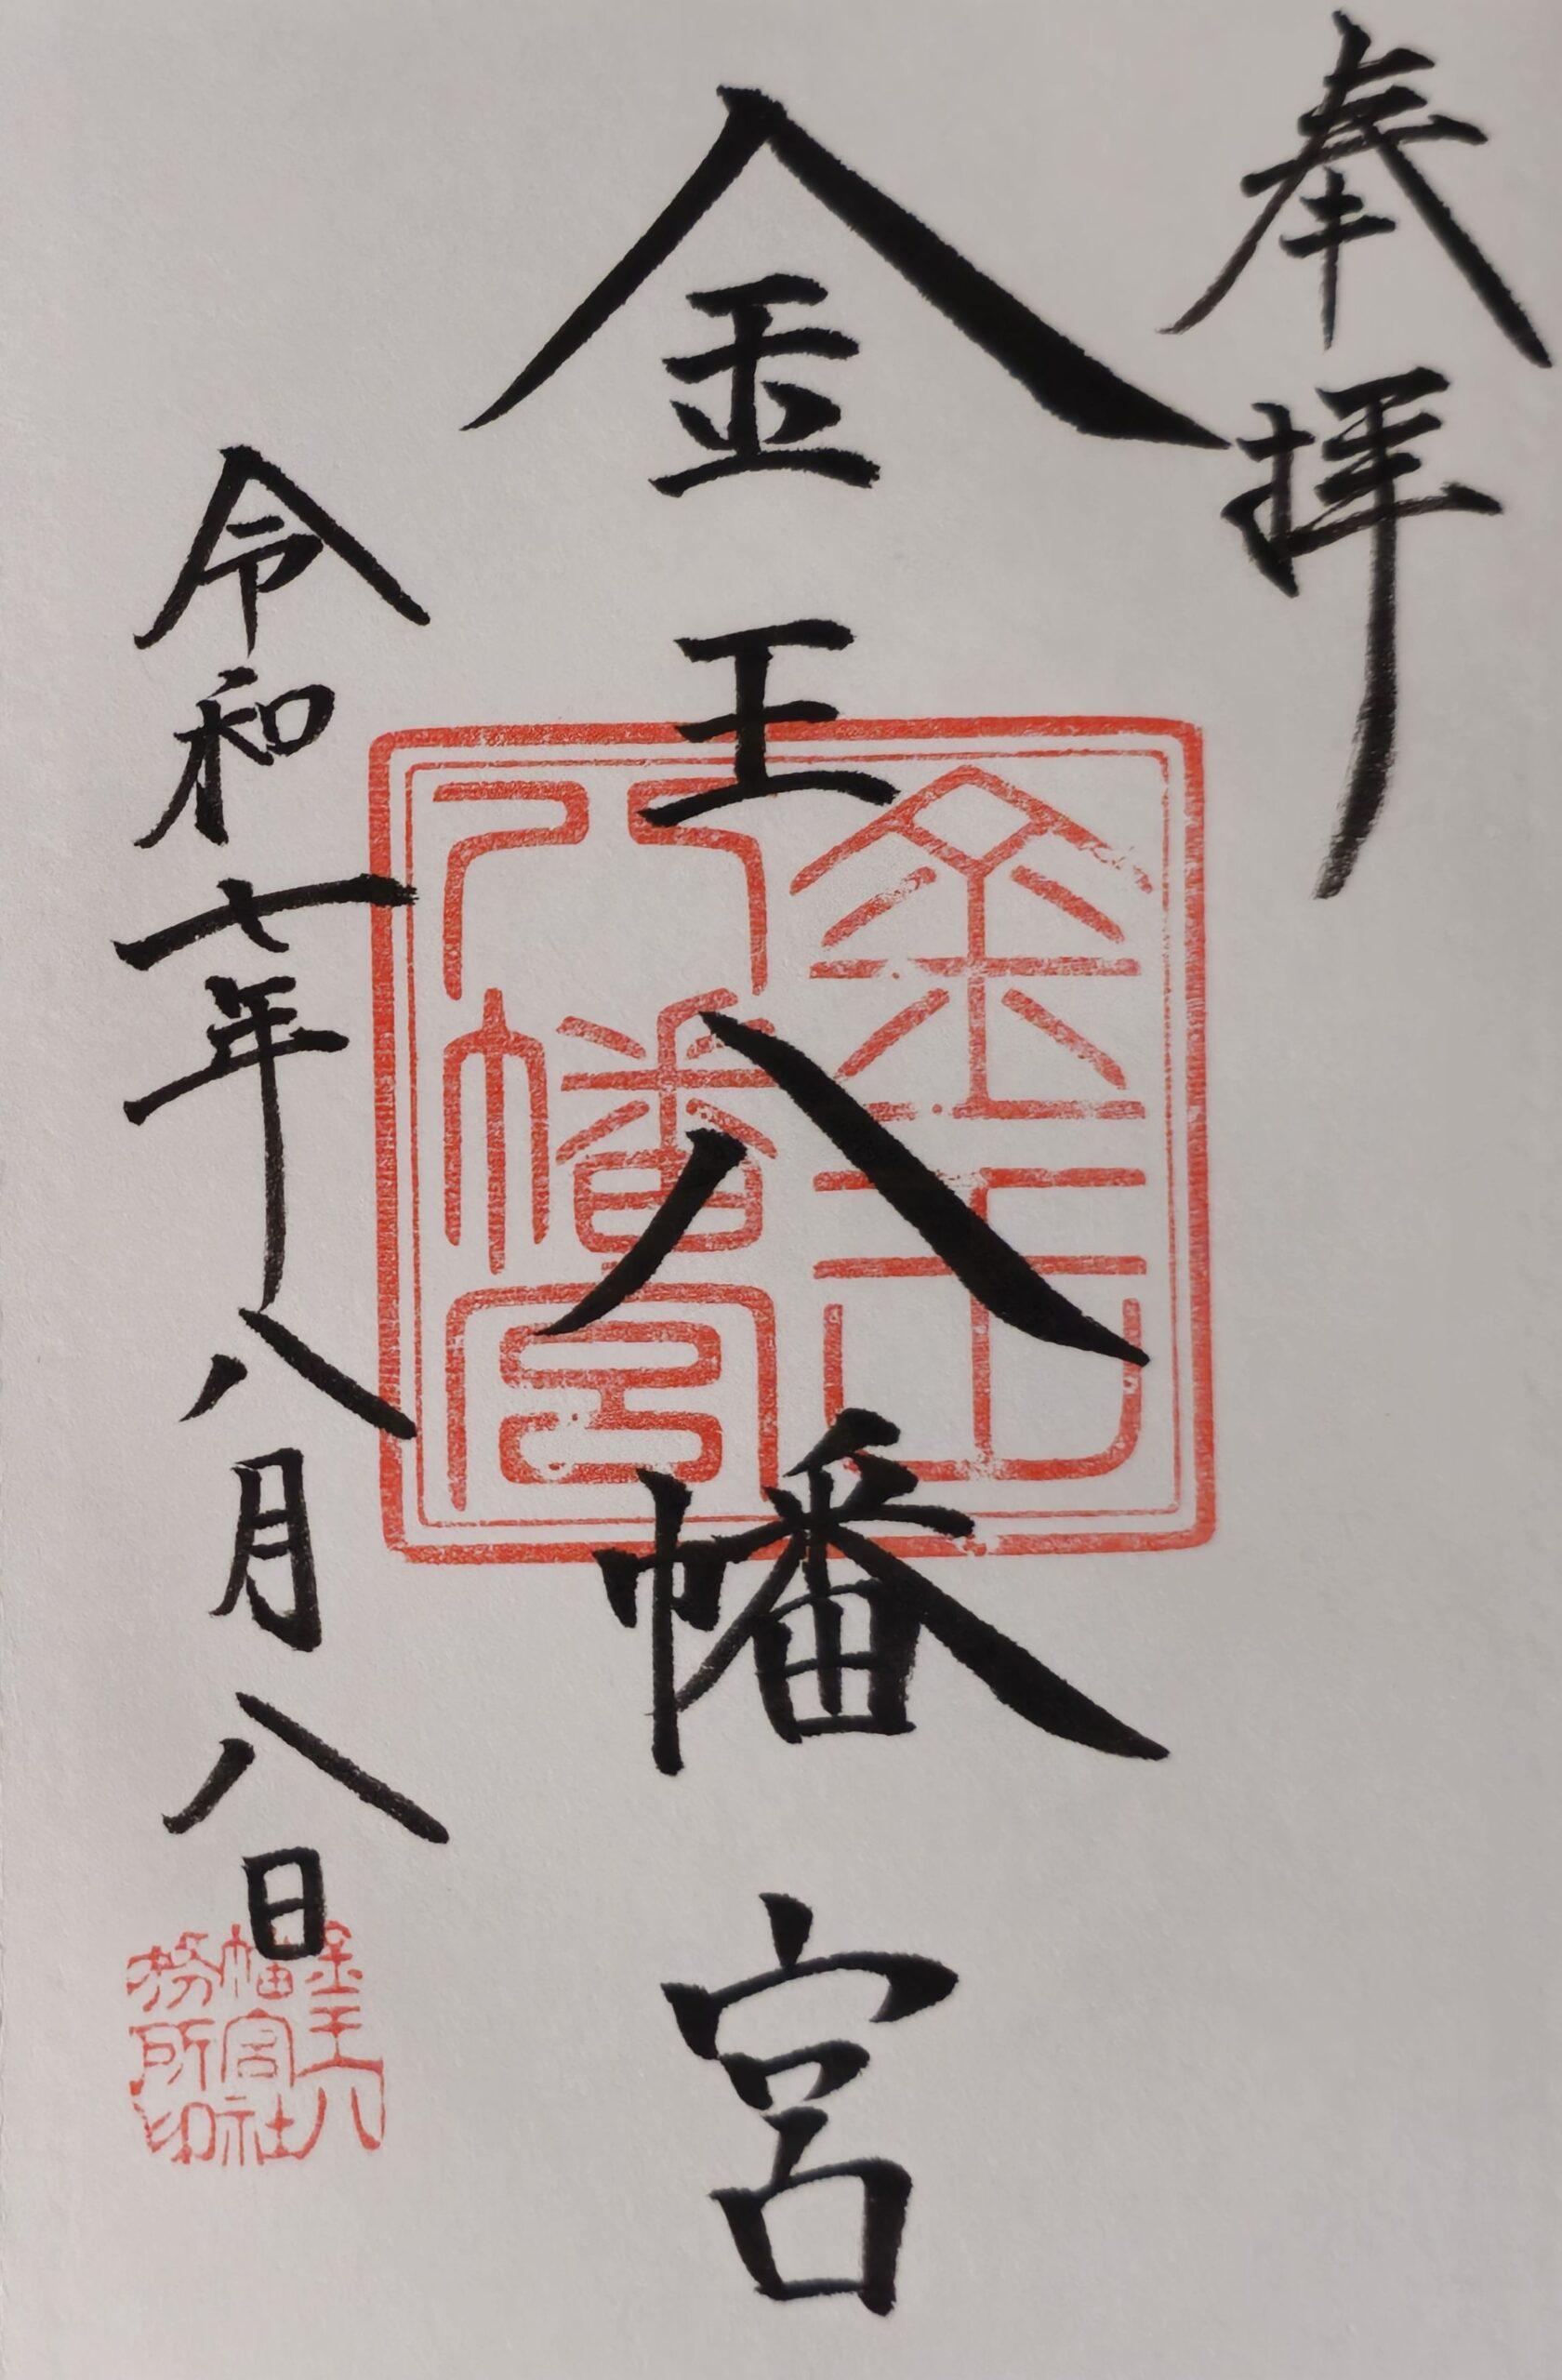 奉拝
金王八幡宮
令和七年八月八日
金王
八幡宮
金王八
幡宮社
務所印